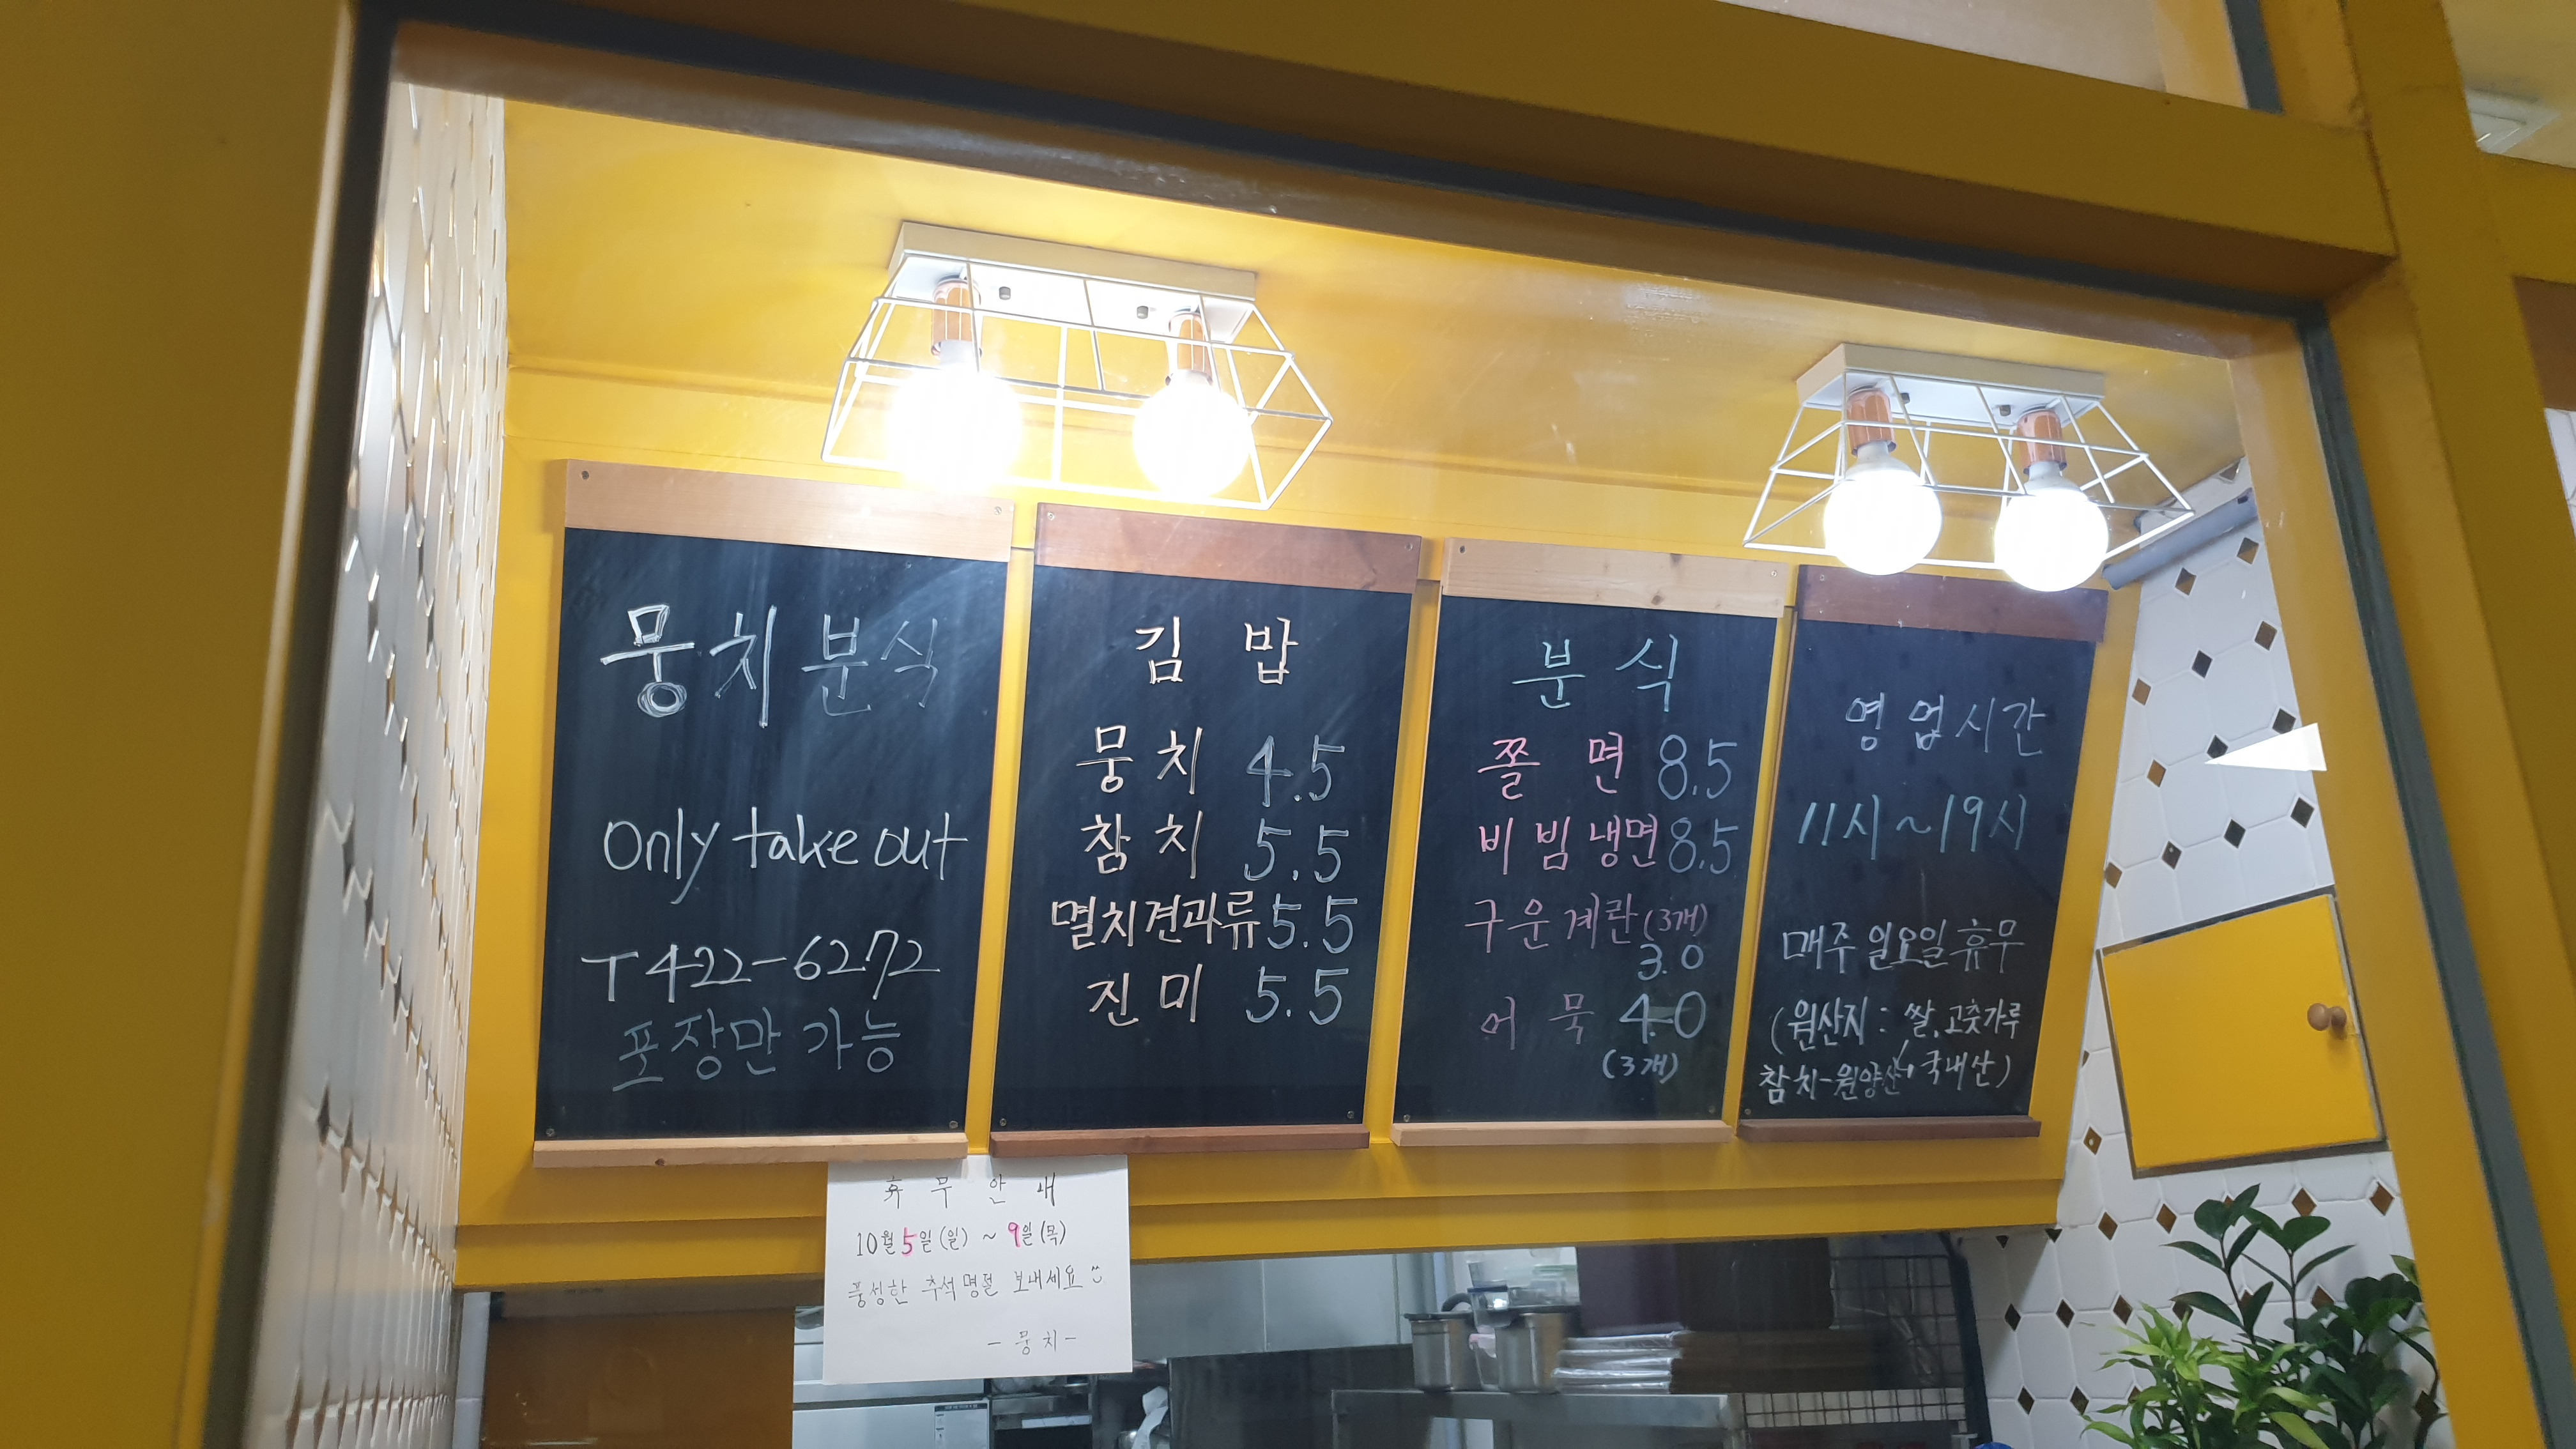 뭉치분식
only take out
T 422-6272
포장만 가능
김 밥
뭉치 4.5
참치 5.5
멸치견과류 5.5
진미 5.5
분 식
쫄 면 8.5
비빔냉면 8.5
구운계란 (3개)
3.0
어 묵 4.0
(3개)
영업시간
11시~19시
매주 일요일 휴무
(원산지: 쌀, 고춧가루
참치-원양산, 국내산)
휴 무 안 내
10월 5일(일) ~ 9일(목)
풍성한 추석명절 보내세요
- 뭉치 -